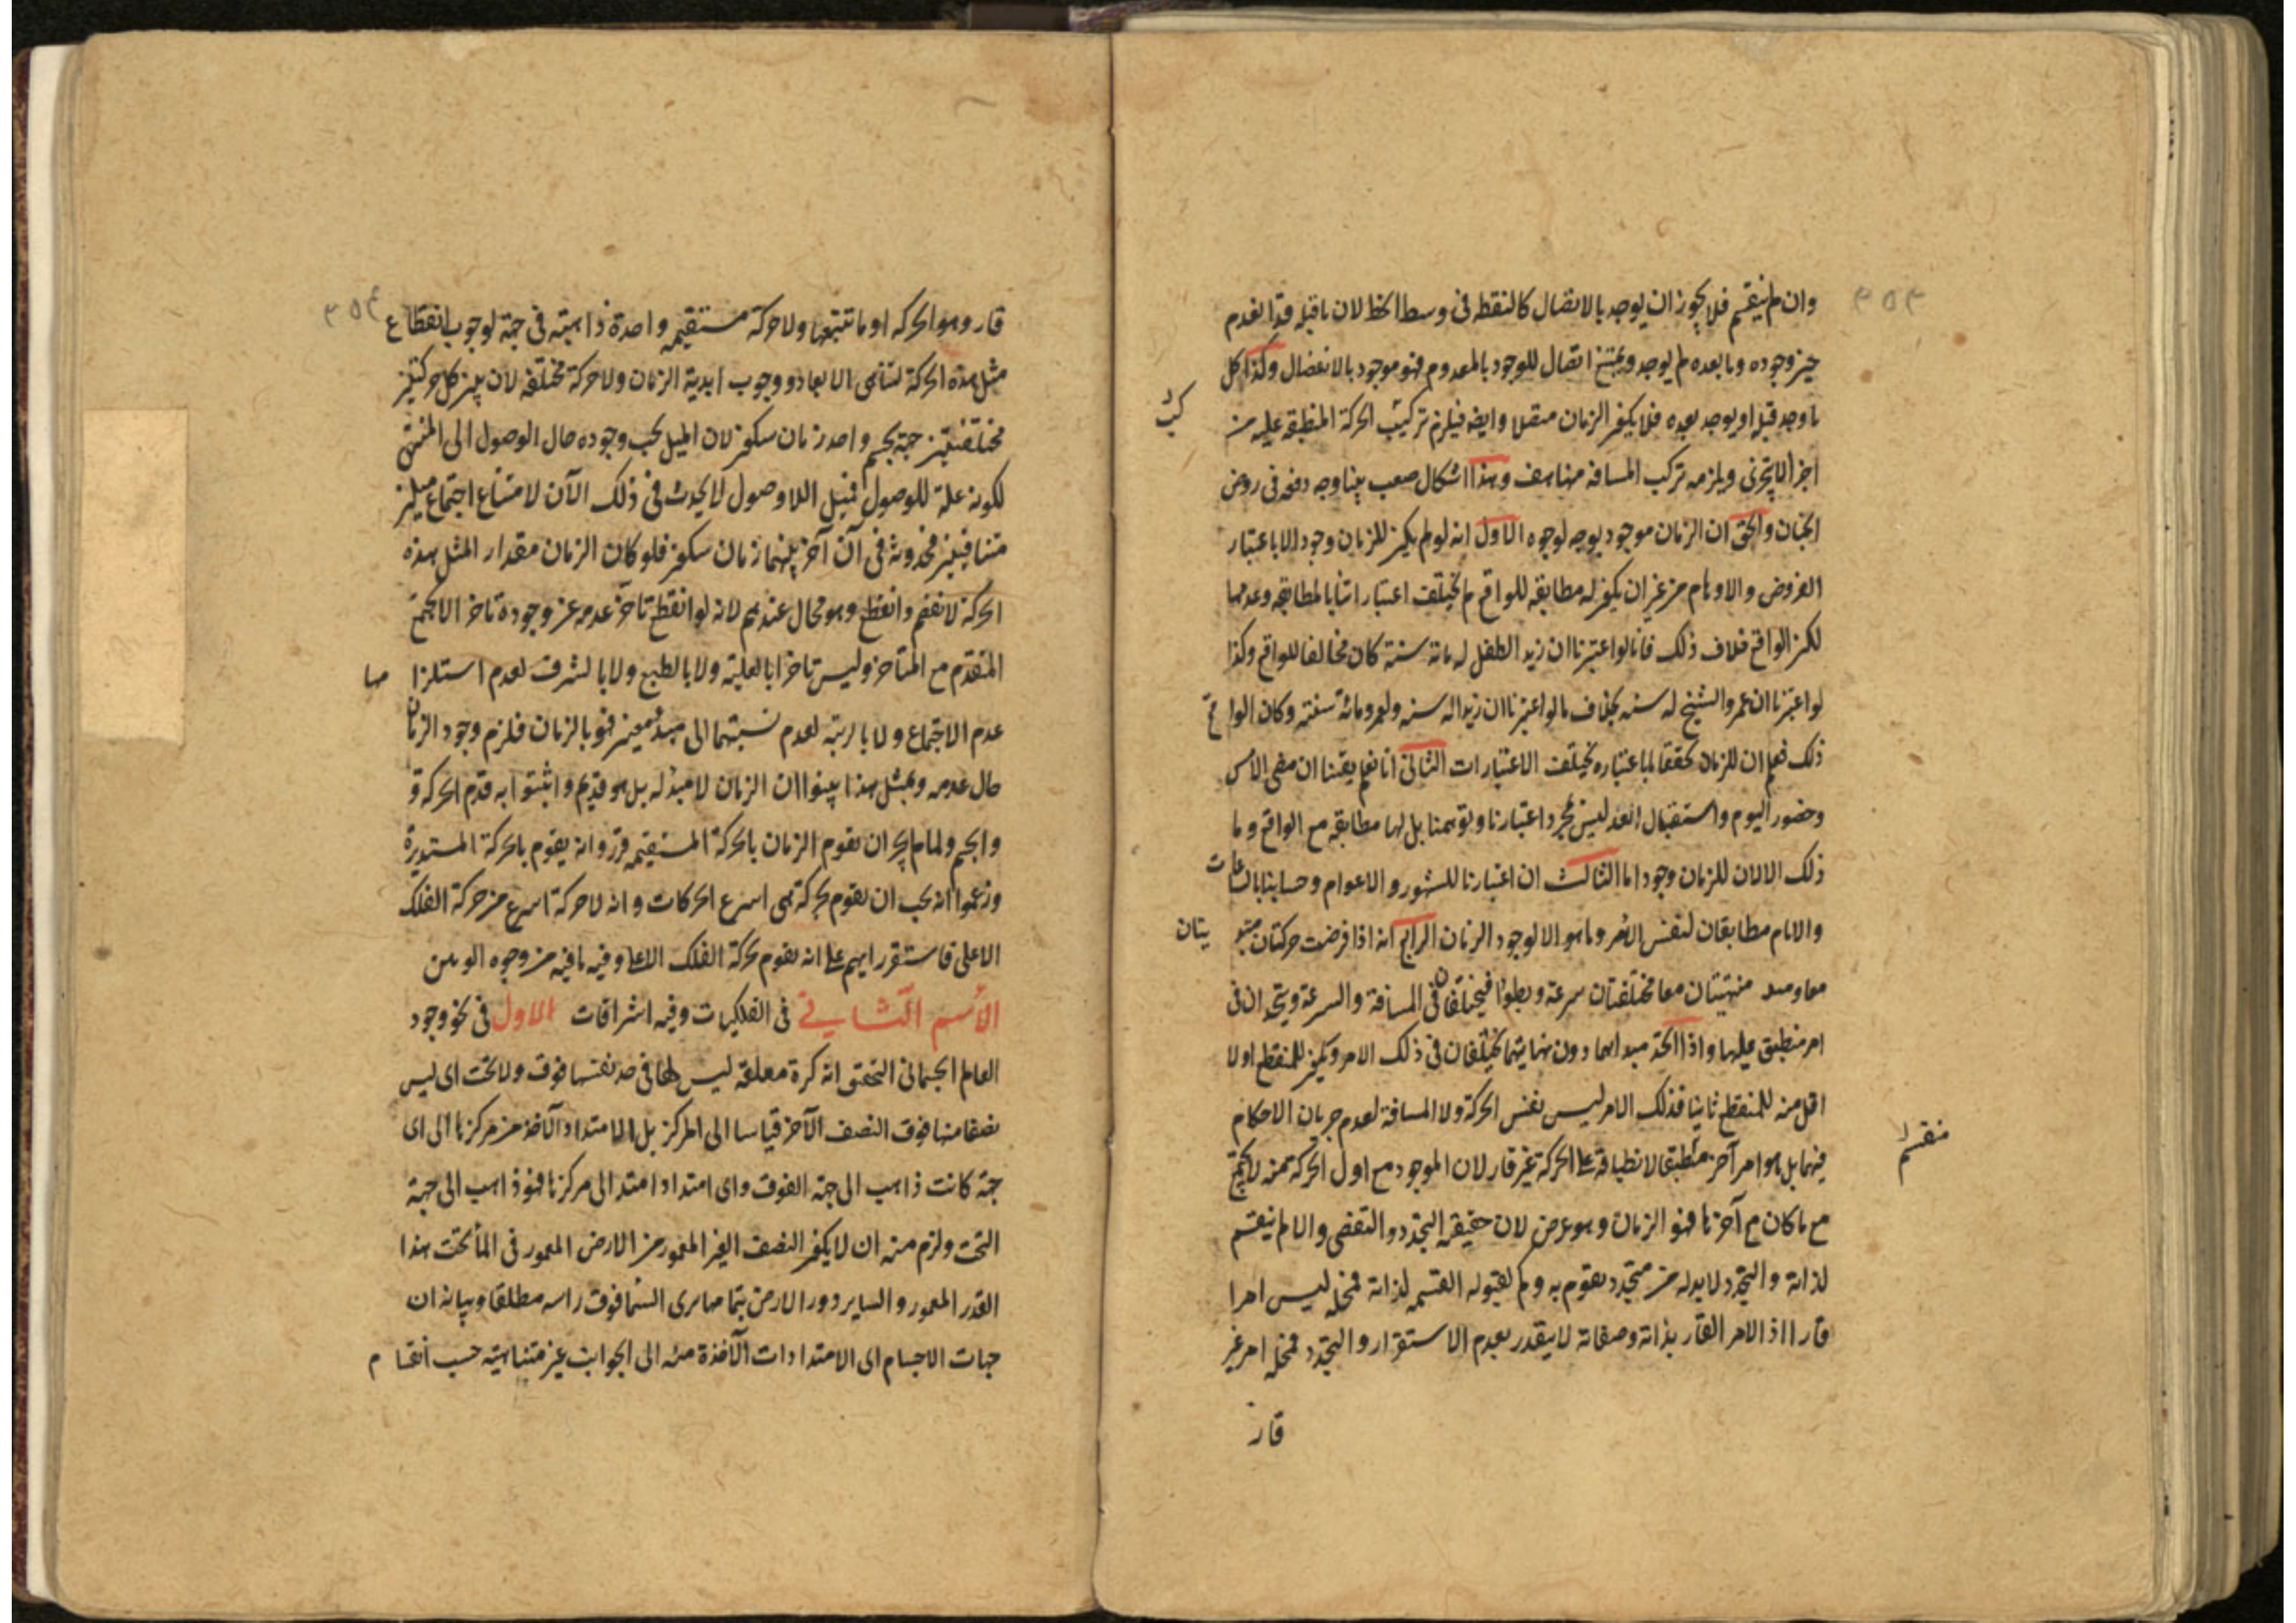 ٣٥٣
وان لم ينقسم فلا يجوز ان يوجد بالاتصال كالنقطه فى وسط الخط لان ما قبله قد انعدم
حين وجوده وما بعده لم يوجد ويمتنع اتصال الموجود بالمعدوم فهو موجود بالانفصال وكذا كل
ما وجد قبله او يوجد بعده فلا يكون الزمان متصلا وايضه فيلزم تركيب الحركة المنطبقه عليه من
اجزا لا يتجزى ويلزمه تركب المسافه منها هف وهذا اشكال صعب بينا وجه دفعه فى روض
الجنان والحق ان الزمان موجود بوجه لوجوه الاول انه لو لم يكن للزمان وجود الا باعتبار
الفروض والاوهام من غير ان يكون له مطابقه للواقع لم يختلف اعتبارا تنا بالمطابقه وعدمها
لكن الواقع خلاف ذلك فانا لو اعتبرنا ان زيد الطفل له مائة سنة كان مخالفا للواقع وكذا
لو اعتبرنا ان عمرو الشيخ له سنه بخلاف ما لو اعتبرنا ان زيدا له سنه ولعمرو مائة سنته وكان الواقع
ذلك فعلم ان للزمان تحققا لما باعتباره يختلف الاعتبارات الثانى انا نعلم يقينا ان مضى الامس
وحضور اليوم واستقبال الغد ليس مجرد اعتبارنا وتوهمنا بل لها مطابقه مع الواقع وما
ذلك الا لان للزمان وجودا ما الثالث ان اعتبارنا للشهور والاعوام وحسابنا بالساعات
والايام مطابقان لنفس الامر وما هو الا لوجود الزمان الرابع انه اذا فرضت حركتان مبتد يتان
معا ومنتهيتان معا مختلفتان سرعة وبطوا فيختلفان فى المسافة والسرعة ويتحدان فى
امر منطبق عليها واذا اتحد مبداهما دون نهايتهما يختلفان فى ذلك الامر ويكون للمنقطع اولا
اقل منه للمنقطع ثانيا فذلك الامر ليس نفس الحركة ولا المسافة لعدم جريان الاحكام
فيهما بل هو امر آخر منطبق لانطباقه على الحركة غير قار لان الموجود مع اول الحركة منه لا يجتمع
منقسم
مع ما كان مع آخرها فهو الزمان وهو عرض لان حقيقة التجدد والتقضى والا لم ينقسم
لذاته والتجدد لا بد له من متجدد يقوم به ولم لقبوله القسمه لذاته فمحله ليس امرا
قارا اذ الامر القار بذاته وصفاته لا يتقدر بعدم الاستقرار والتجدد فمحله امر غير
قار
٣٥٤
قار وهو الحركه او ما تتبعها ولا حركة مستقيمه واحدة ذاهبة فى جهة لوجوب انقطاع
مثل هذه الحركة لتناهى الابعاد ووجوب ابدية الزمان ولا حركة مختلفه لان بين كل حركتين
مختلفتين جهة بجسم واحد زمان سكون لان الميل يجب وجوده حال الوصول الى المنتهى
لكونه علة للوصول فميل اللاوصول لا يحدث فى ذلك الآن لامتناع اجتماع ميلين
متنافيين فحدوثه فى آن آخر بينهما زمان سكون فلو كان الزمان مقدار المثل هذه
الحركة لانفصم وانقطع وهو محال عندهم لانه لو انقطع تاخر عدمه عن وجوده تاخرا لا يجتمع
المتقدم مع المتاخر وليس تاخرا بالعلية ولا بالطبع ولا بالشرف لعدم استلزا مها
عدم الاجتماع ولا بالرتبه لعدم نسبتهما الى مبدء معين فهو بالزمان فلزم وجود الزمان
حال عدمه وبمثل هذا بينوا ان الزمان لا مبدء له بل هو قديم واثبتوا به قدم الحركة
والجسم ولما لم يجز ان يقوم الزمان بالحركة المستقيمه قرروا انه يقوم بالحركة المستديرة
وزعموا انه يجب ان يقوم بحركة هى اسرع الحركات وانه لا حركة اسرع من حركة الفلك
الاعلى فاستقر رايهم على انه يقوم بحركة الفلك الاعلى وفيه ما فيه من وجوه الوهن
القسم الثانى فى الفلكيات وفيه اشراقات الاول فى نحو وجود
العالم الجسمانى التحقق انه كرة معلقه ليس لها فى حد نفسها فوق ولا تحت اى ليس
نصفا منها فوق النصف الآخر قياسا الى المركز بل الامتداد الآخذ من مركزها الى اى
جهة كانت ذاهب الى جهة الفوق واى امتداد امتد الى مركزها فهو ذاهب الى جهة
التحت ولزم منه ان لا يكون النصف الغير المغمور من الارض المغمور فى الماء تحت هذا
القدر المعمور والساير دور الارض بتمامها يرى السما فوق راسه مطلقا وبيانه ان
جهات الاجسام اى الامتدادات الآخذة منه الى الجوانب غير متناهية حسب انقسام